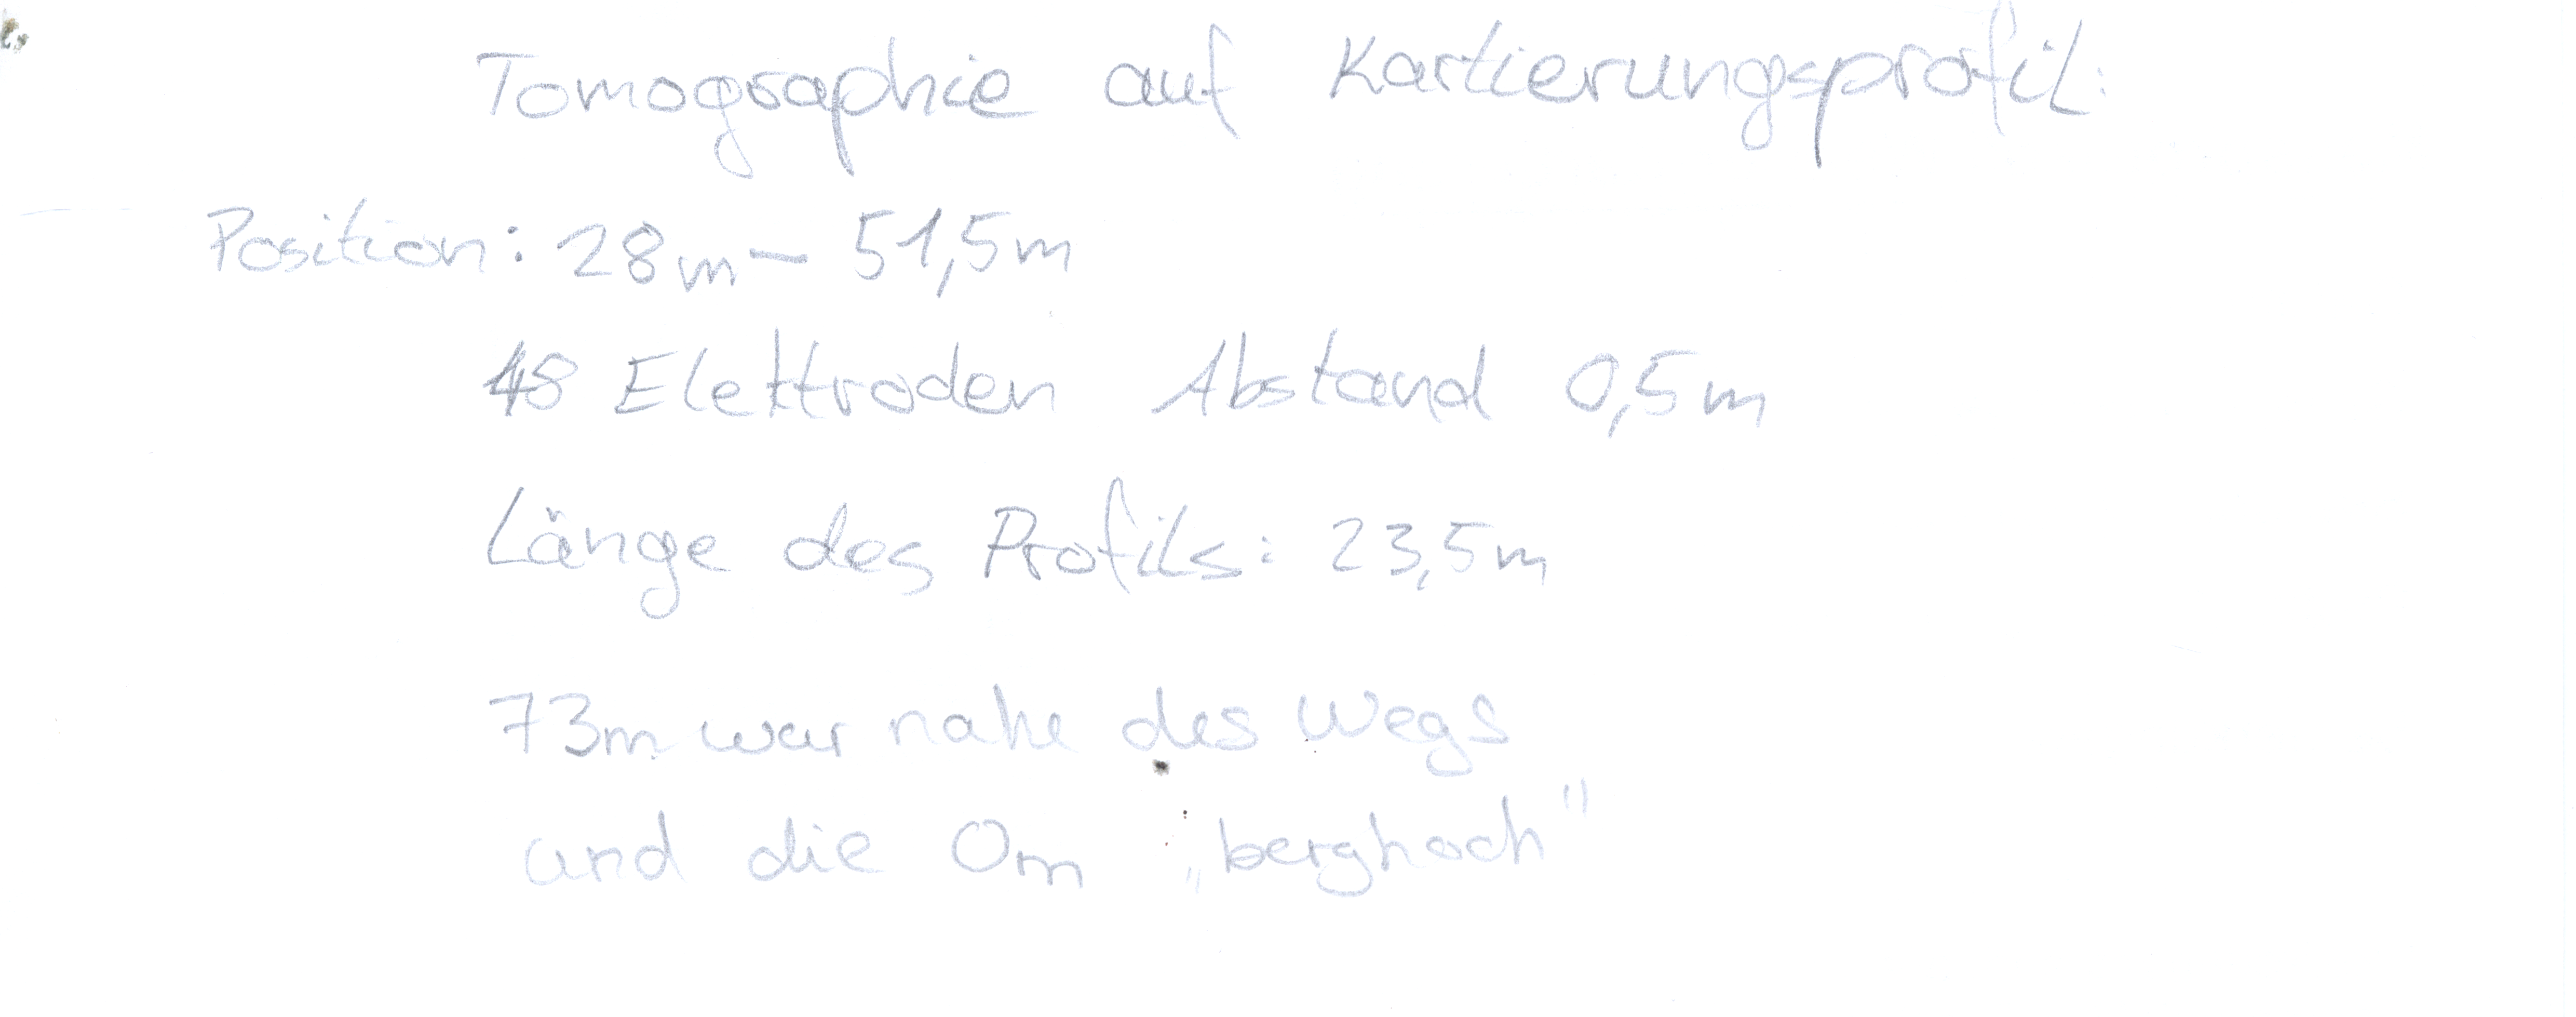 Tomographie auf Kartierungsprofil:
Position: 28m – 51,5m
48 Elektroden Abstand 0,5m
Länge des Profils: 23,5m
73m war nahe des Wegs
und die 0m „berghoch"